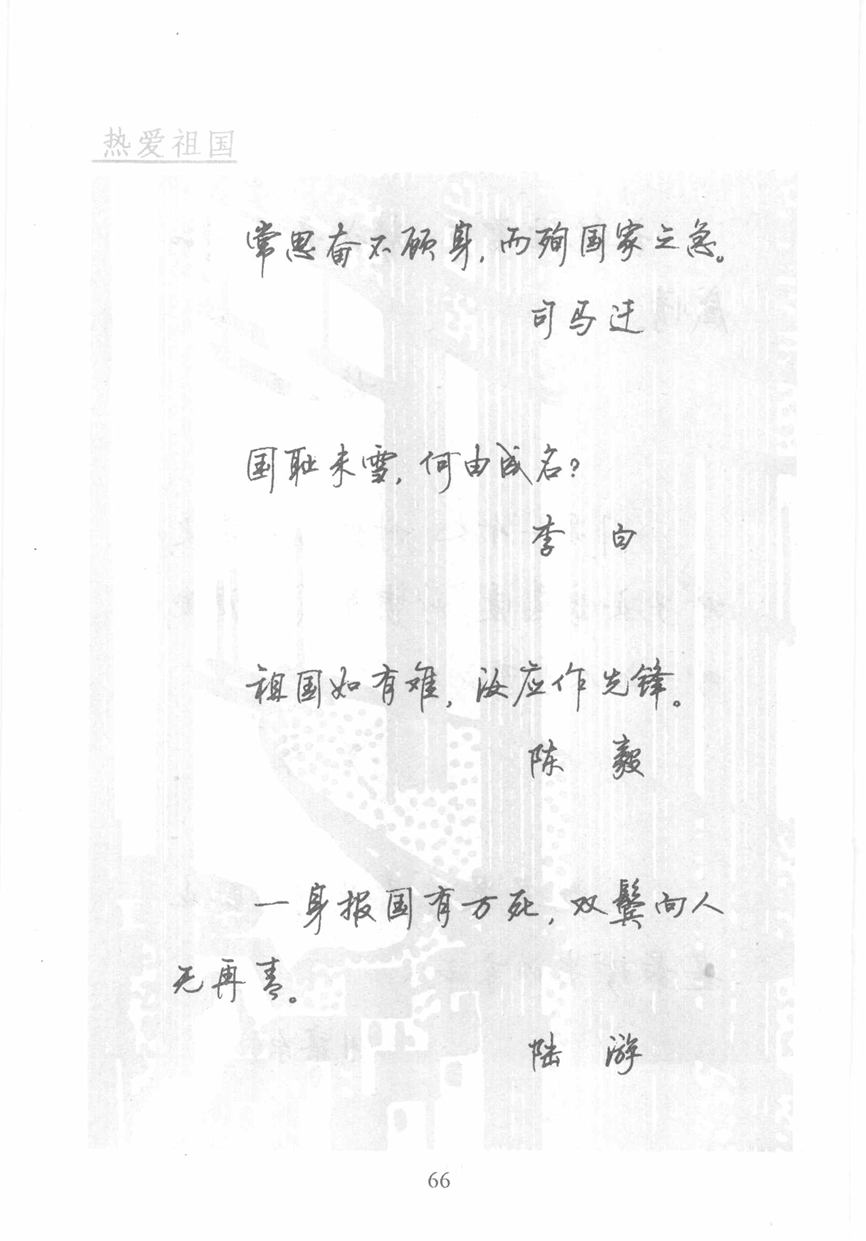 热爱祖国
常思奋不顾身，而殉国家之急。
司马迁
国耻未雪，何由成名？
李 白
祖国如有难，汝应作先锋。
陈 毅
一身报国有万死，双鬓向人
无再青。
陆 游
66